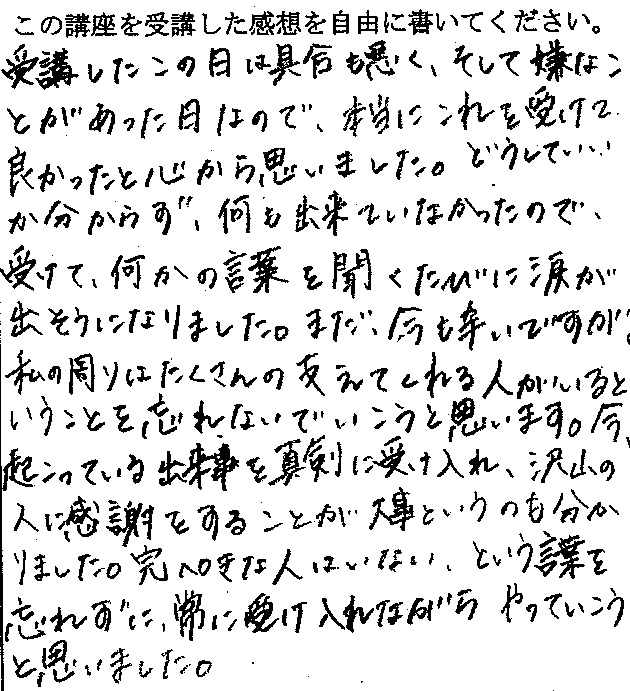 この講座を受講した感想を自由に書いてください。
受講したこの日は具合も悪く、そして嫌なこ
とがあった日なので、本当にこれを受けて
良かったと心から思いました。どうしていい
か分からず、何も出来ていなかったので、
受けて、何かの言葉を聞くたびに涙が
出そうになりました。まだ、今も辛いですが、
私の周りはたくさんの支えてくれる人がいると
いうことを忘れないでいこうと思います。今、
起こっている出来事を真剣に受け入れ、沢山の
人に感謝をすることが大事というのも分か
りました。完ペきな人はいない、という言葉を
忘れずに、常に受け入れながら やっていこう
と思いました。